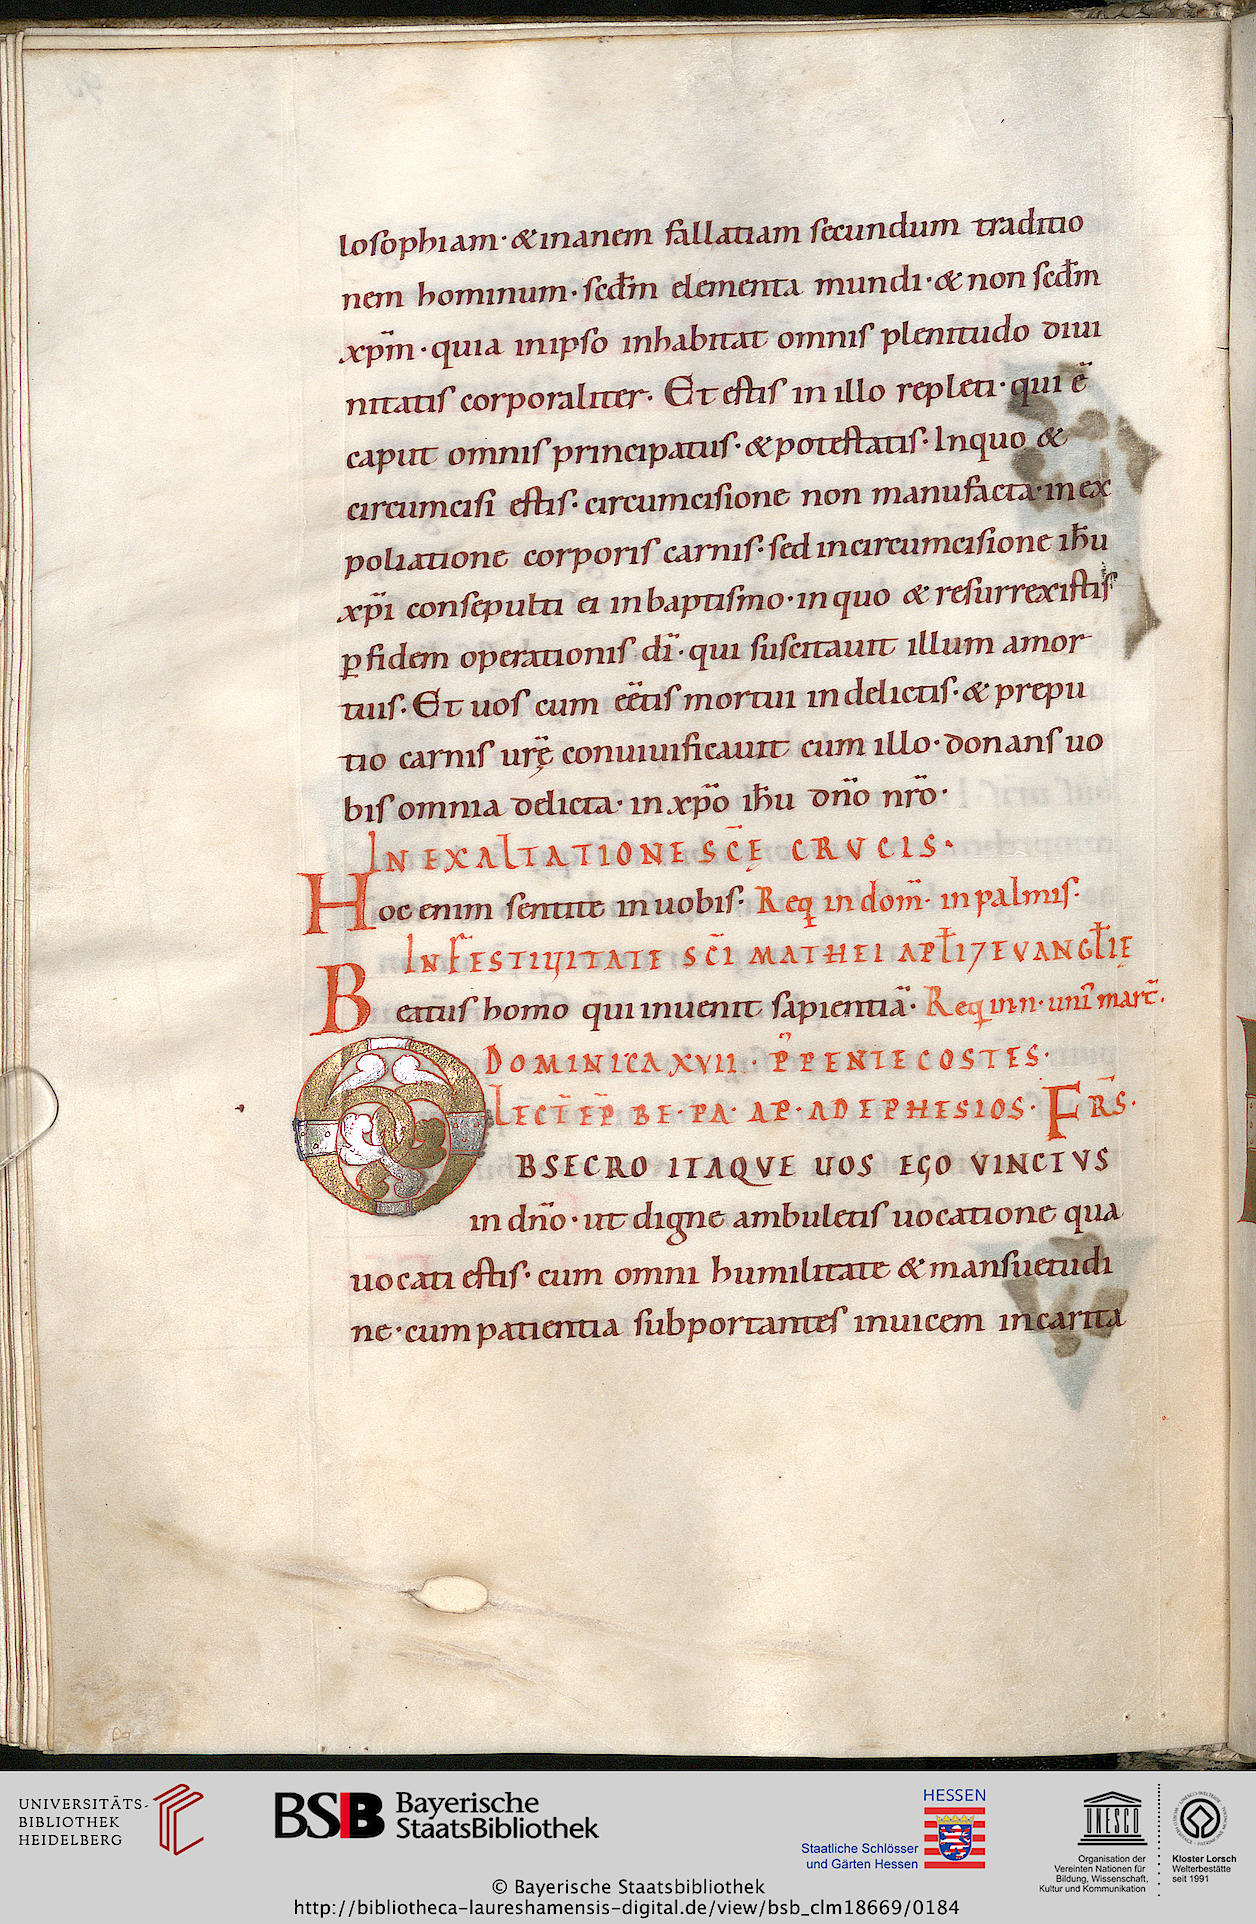 losophiam· &inanem fallatiam secundum traditio
nem hominum· scđm elementa mundi· & non scđm
xp̄m· quia inipso inhabitat omnis plenitudo diui
nitatis corporaliter. Et estis in illo repleti· qui ē
caput omnis principatus· &potestatis· Inquo &
circumcisi estis· circumcisione non manufacta· inex
poliatione corporis carnis· sed incircumcisione ih̄u
xp̄i consepulti ei inbaptismo· inquo & resurrexistis
ꝑ fidem operationis dī· qui suscitauit illum amor
tuis· Et uos cum eētis mortui indelictis· & prepu
tio carnis urę̄ conuiuificauit cum illo· donans uo
bis omnia delicta· in xp̄o ih̄u dn̄o nr̄o·
IN EXALTATIONE SC̄Ę CRVCIS·
Hoc enim sentite inuobis· Req in dom̄· in palmis·
IN FESTIUITATE SC̄I MATHEI APL̄I 7 EVANGL̄IĘ
Beatus homo qui inuenit sapientiā· Req in·n· uniꝰ mart̄.
DOMINICA XVII· P̄ PENTECOSTES·
LECT̄ EP̄ BE· PA· AP· AD EPHESIOS· FR̄S·
OBSECRO ITAQVE UOS EGO VINCTVS
in dn̄o· ut digne ambuletis uocatione qua
uocati estis· cum omni humilitate & mansuetudi
ne· cum patientia subportantes inuicem incarita
UNIVERSITÄTS-
BIBLIOTHEK
HEIDELBERG
BSB Bayerische
StaatsBibliothek
HESSEN
Staatliche Schlösser
und Gärten Hessen
UNESCO
Organisation der
Vereinten Nationen für
Bildung, Wissenschaft,
Kultur und Kommunikation
Kloster Lorsch
Welterbestätte
seit 1991
© Bayerische Staatsbibliothek
http://bibliotheca-laureshamensis-digital.de/view/bsb_clm18669/0184